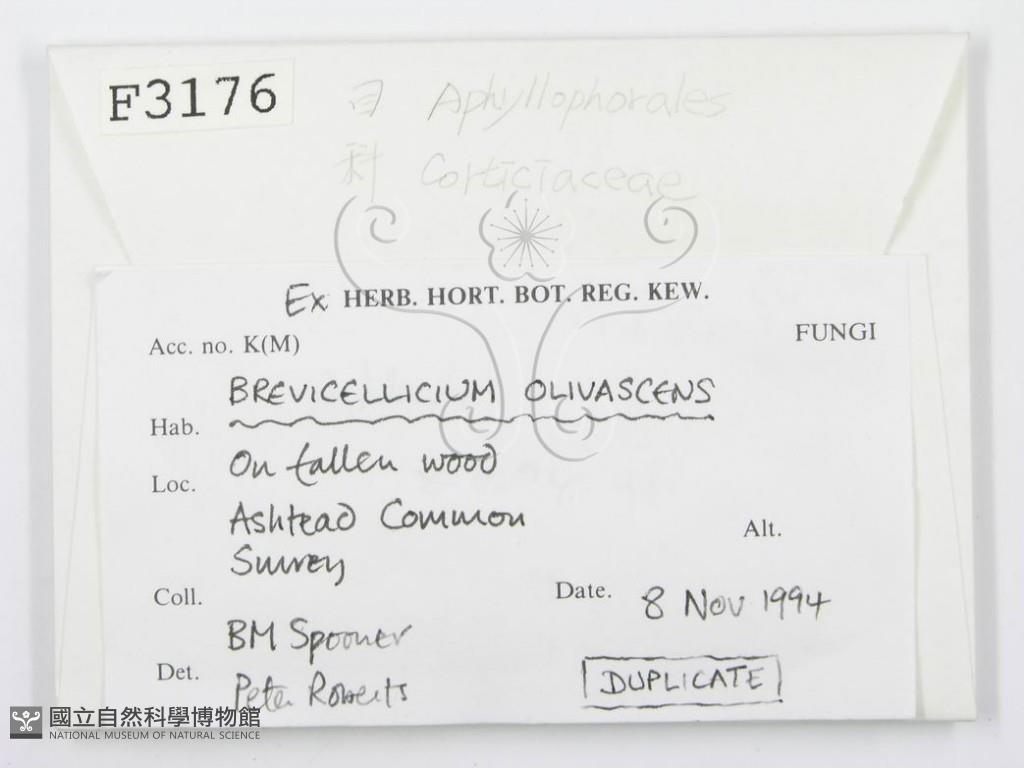 F3176
目 Aphyllophorales
科 Corticiaceae
Ex HERB. HORT. BOT. REG. KEW.
Acc. no. K(M)
FUNGI
BREVICELLICIUM OLIVASCENS
Hab.
On fallen wood
Loc.
Ashtead Common
Alt.
Surrey
Coll.
Date. 8 Nov 1994
BM Spooner
Det.
Peter Roberts
DUPLICATE
國立自然科學博物館
NATIONAL MUSEUM OF NATURAL SCIENCE